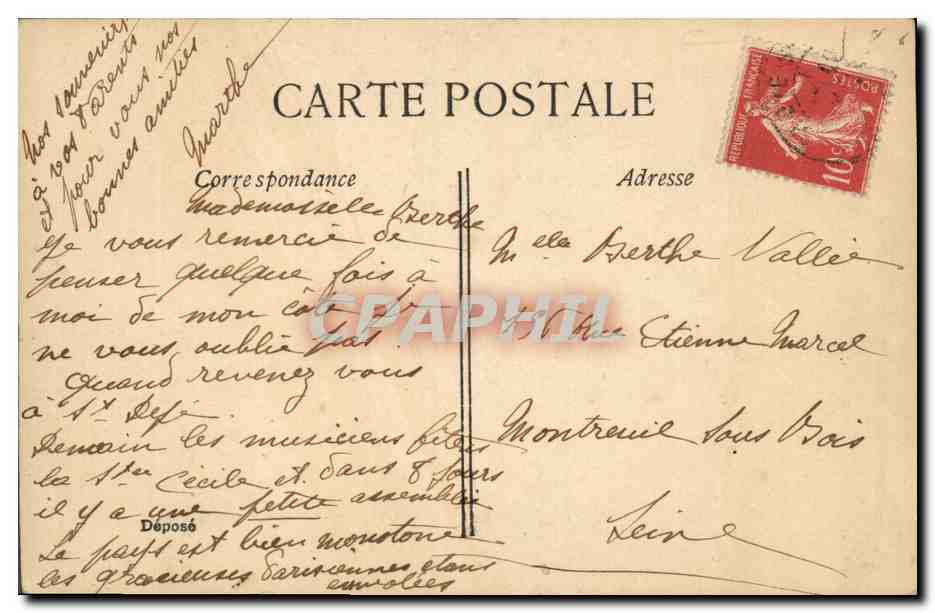 CARTE POSTALE
Correspondance
Adresse
RÉPUBLIQUE FRANÇAISE
POSTES
10c
Mademoiselle Berthe
Je vous remercie de
penser quelque fois à
moi de mon côté je
ne vous oublie pas.
Quand revenez vous
à St
Demain les musiciens
la Ste Cécile et dans 8 jours
il y a une petite assemblée
Déposé
Le pays est bien monotone
les gracieuses Parisiennes étans
envolées
Nos souvenirs
à vos Parents
et pour vous nos
bonnes amitiés
Marthe
Melle Berthe Vallée
Rue Etienne Marcel
Montreuil Sous Bois
Seine
CPAPHIL